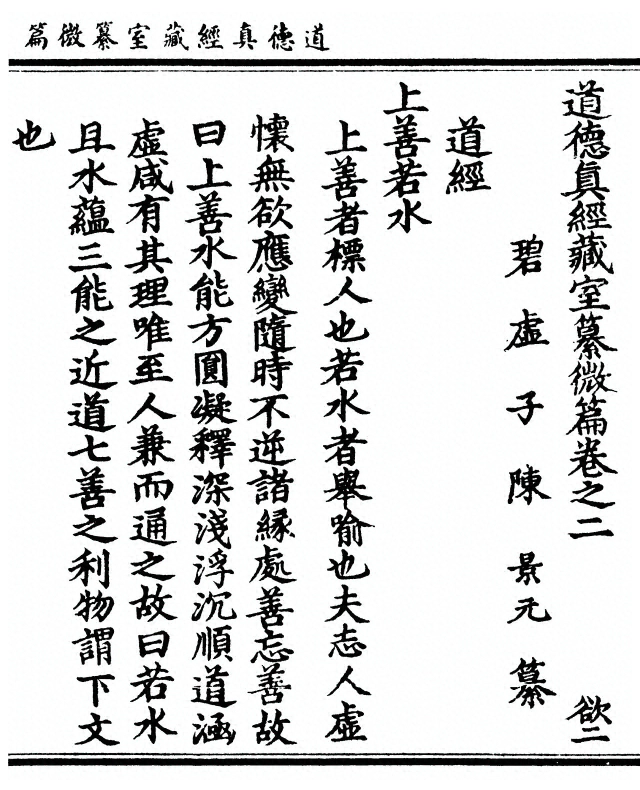 道德真經藏室纂微篇
道德眞經藏室纂微篇卷之二 欲二
碧虛子陳景元纂
道經
上善若水
上善者標人也若水者舉喻也夫志人虛
懷無欲應變隨時不逆諸縁處善忘善故
曰上善水能方圓凝釋深淺浮沉順道涵
虛咸有其理唯至人兼而通之故曰若水
且水蘊三能之近道七善之利物謂下文
也